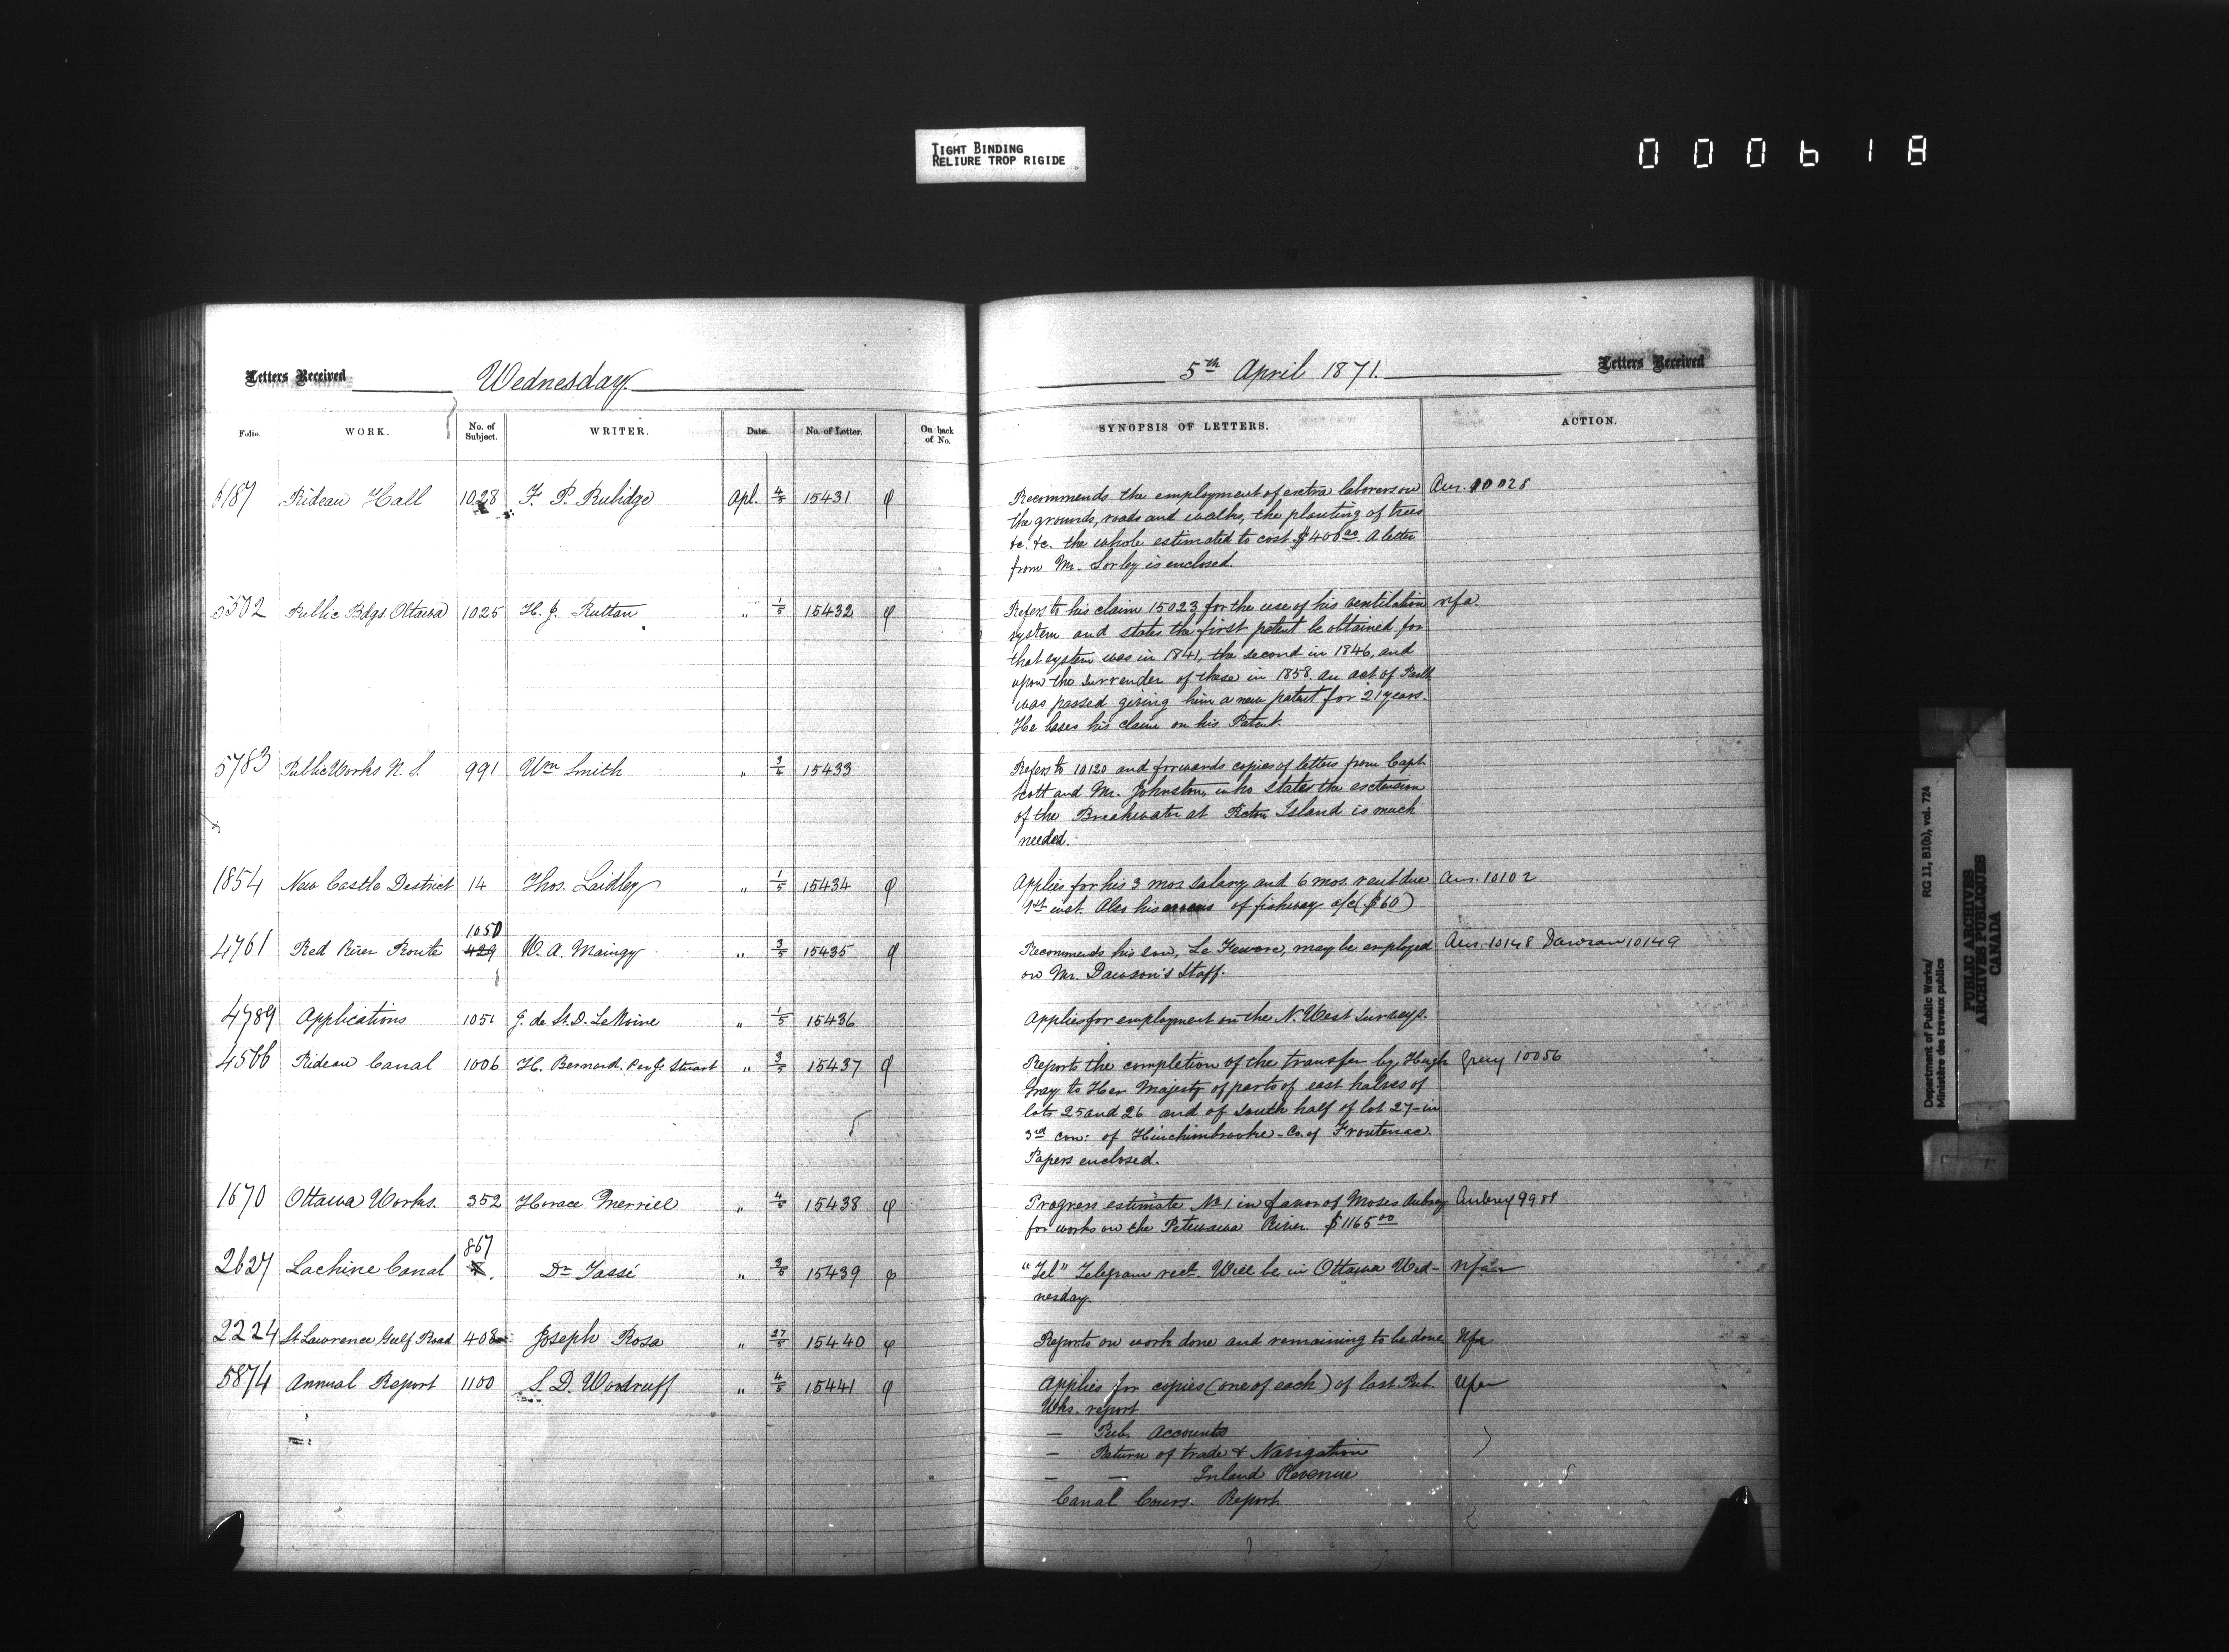 TIGHT BINDING
RELIURE TROP RIGIDE
000618
Letters Received Wednesday. 5th April 1871. Letters Received
Folio. WORK. No. of Subject. WRITER. Date. No. of Letter. On back of No. SYNOPSIS OF LETTERS. ACTION.
5187 Rideau Hall 1028 F. P. Rubidge Apl. 4/5 15431 φ Recommends the employment of extra laborers on Ans. 10028
the grounds, roads and walks, the planting of trees
&c. &c. the whole estimated to cost $400.00. A letter
from Mr. Sorley is enclosed.
5502 Public Bdgs. Ottawa 1025 H. J. Ruttan " 1/5 15432 φ Refers to his claim 15023 for the use of his ventilation nfa.
system and states the first patent he obtained for
that system was in 1841, the second in 1846, and
upon the surrender of these in 1858 an act of Parlt
was passed giving him a new patent for 21 years.
He bases his claim on his Patent.
5783 Public Works N. S. 991 Wm Smith " 3/4 15433 Refers to 10120 and forwards copies of letters from Capt
Scott and Mr. Johnston, who states the extension
of the Breakwater at Pictou Island is much
needed.
1854 New Castle District 14 Thos. Laidley " 1/5 15434 φ Applies for his 3 mos salary and 6 mos. rent due Ans. 10102
1st inst. Also his arrears of fishway a/c ($60)
1050
4761 Red River Route 429 W. A. Maingy " 3/5 15435 φ Recommends his son, Le Fevere, may be employed Ans. 10148 Dawson 10149
on Mr. Dawson's Staff.
4789 Applications 1051 J. de St. D. LeMoine " 1/5 15436 Applies for employment on the N. West Surveys.
4566 Rideau Canal 1006 H. Bernard. Per J. Stuart " 3/5 15437 φ Reports the completion of the transfer by Hugh Grey 10056
Gray to Her Majesty of parts of east halves of
lots 25 and 26 and of south half of lot 27 in
3rd con: of Hinchinbrooke - Co. of Frontenac.
Papers enclosed.
1670 Ottawa Works. 352 Horace Merrill " 4/5 15438 φ Progress estimate No 1 in favor of Moses Aubrey Aubrey 9988
for works on the Petewawa River. $1165.00
867
2627 Lachine Canal Dr Tassé " 3/5 15439 φ "Tel" Telegram recd. Will be in Ottawa Wed- nfa
nesday.
2224 St. Lawrence Gulf Road 408 Joseph Rosa " 27/5 15440 φ Reports on work done and remaining to be done Nfa
5874 Annual Report 1100 S. D. Woodruff " 4/5 15441 φ Applies for copies (one of each) of last Pub. Nfa
Wks. report
— Pub. Accounts
— Return of trade & Navigation
— — Inland Revenue
Canal Coms. Report
Department of Public Works/ RG 11, B1(b), vol. 724
Ministère des travaux publics
PUBLIC ARCHIVES
ARCHIVES PUBLIQUES
CANADA